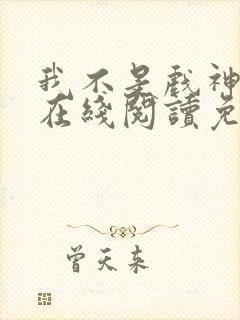 我不是戏神
在綫閱讀免
曾天来